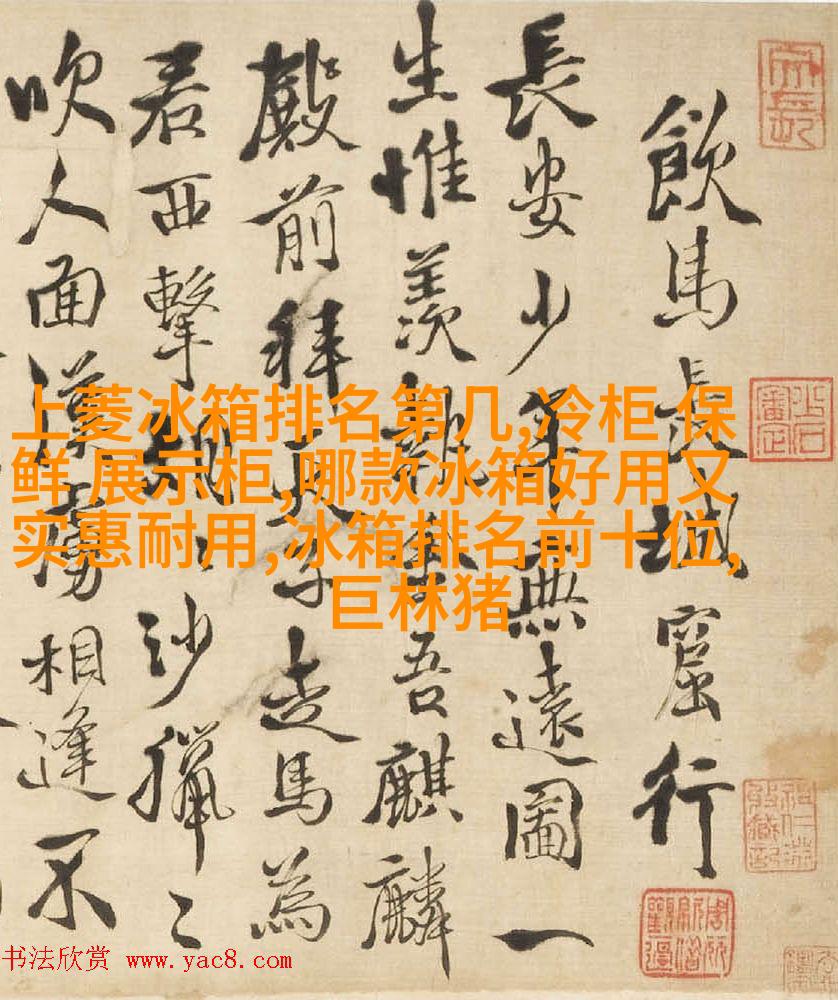 飲馬長城窟行
長安少年無遠圖一
生惟羨執金吾麒麟
殿前拜天子走馬為
君西擊胡〻沙獵〻
吹人面漢虜相逢不
上菱冰箱排名第几,冷柜 保
鲜 展示柜,哪款冰箱好用又
实惠耐用,冰箱排名前十位,
巨林猪
书法欣赏 www.yac8.com